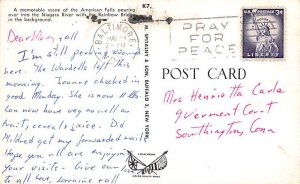 A memorable scene of the American Falls pouring
over into the Niagara River with Rainbow Bridge
in the background.
K7.
BALTIMORE
PRAY
FOR
PEACE
3¢
POST CARD
& SON, BUFFALO 3, NEW YORK,
Dear Mary + all
I'm still
here. The Wardells left this
a.m. Joanne checked in
good Monday. She is now
Can now have veg as well as
fruit, cereals + juice. Did
Mildred get my forwarded mail
Hope you all are enjoying
your visits - Give our
to all Love, Lorraine + all
Mrs Henrietta Carle
9 Vermont Court
Southington, Conn